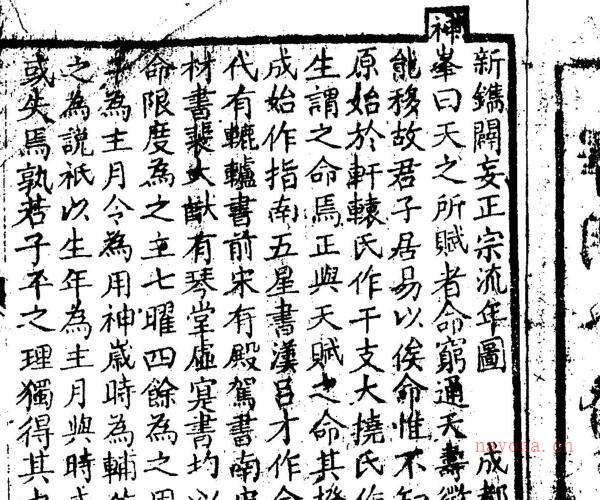 新鐫闢妄正宗流年圖 成都
神峯曰天之所賦者命窮通夭壽
能移故君子居易以俟命惟不
原始於軒轅氏作干支大撓氏作
生謂之命焉正與天賦之命其
成始作指南五星書漢呂才作合
代有轆轤書前宋有殿駕書南宋
材書裴大猷有琴堂虛實書均以
命限度為之主七曜四餘為之用
干為主月令為用神歲時為輔
之為說祇以生年為主月與時
或失焉孰若子平之理獨得其
nayona.cn